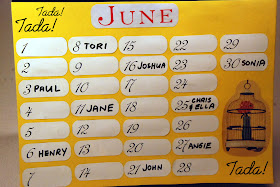 Tada! JUNE
Tada!
1 8 TORI 15 22 29
2 9 16 JOSHUA 23 30 SONIA
3 PAUL 10 17 24
4 11 JANE 18 25 CHRIS & ELLA
5 12 19 26
6 HENRY 13 20 27 ANGIE
7 14 21 JOHN 28 Tada!